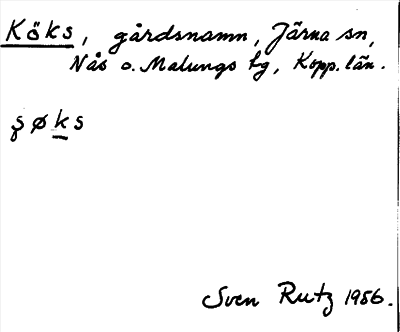 Köks, gårdsnamn, Järna sn,
Nås o. Malungs tg, Kopp. län.
ʂøks
Sven Rutz 1986.